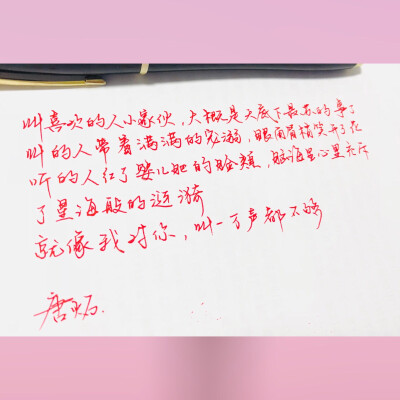 叫喜欢的人小家伙，大概是天底下最苏的事了
叫的人带着满满的宠溺，眼角眉梢笑开了花
听的人红了婴儿肥的脸颊，脑海里心里荡开
了星海般的涟漪
就像我对你，叫一万声都不够
唐